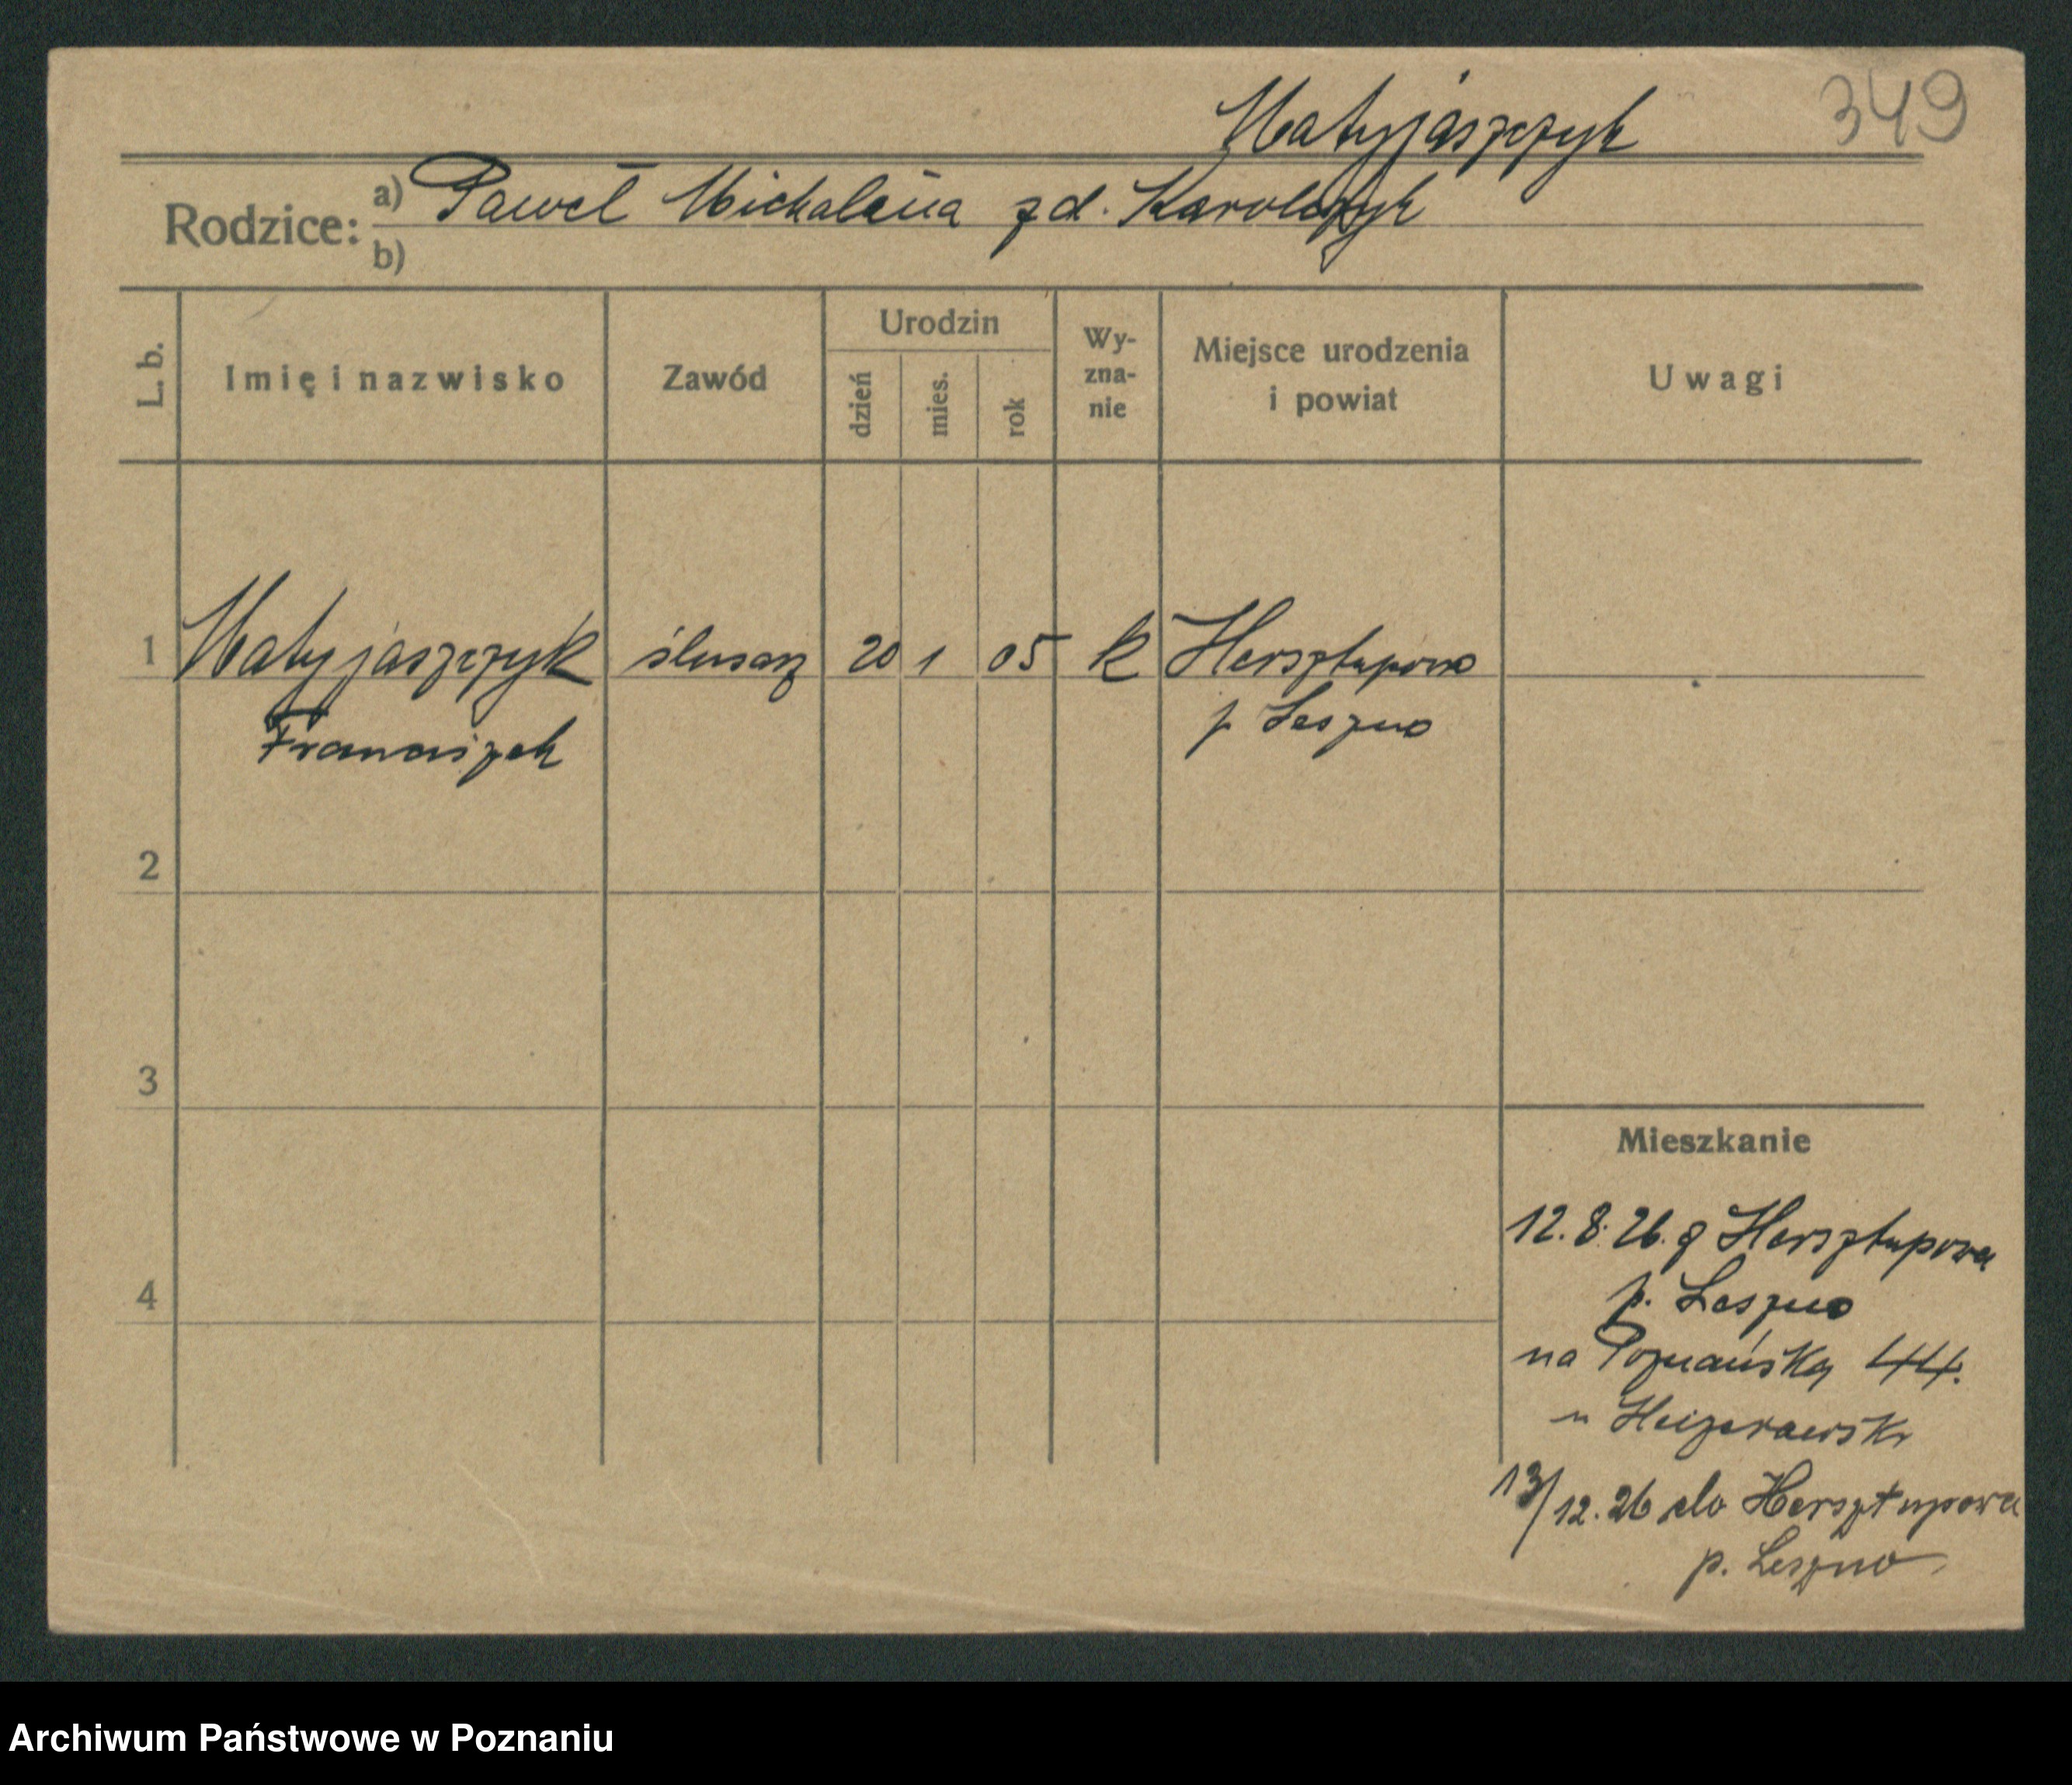 349
Matyjaszczyk
Rodzice: a) Paweł Michalina zd. Karolczyk
b)
L. b. Imię i nazwisko Zawód Urodzin dzień mies. rok Wy-zna-nie Miejsce urodzenia i powiat Uwagi
1 Matyjaszczyk ślusarz 20 1 05 k Hersztupowo
Franciszek p Leszno
2
3
4
Mieszkanie
12.8.26. z Hersztupowa
p. Leszno
na Poznańską 44.
u
13/12.26 do Hersztupowa
p. Leszno
Archiwum Państwowe w Poznaniu